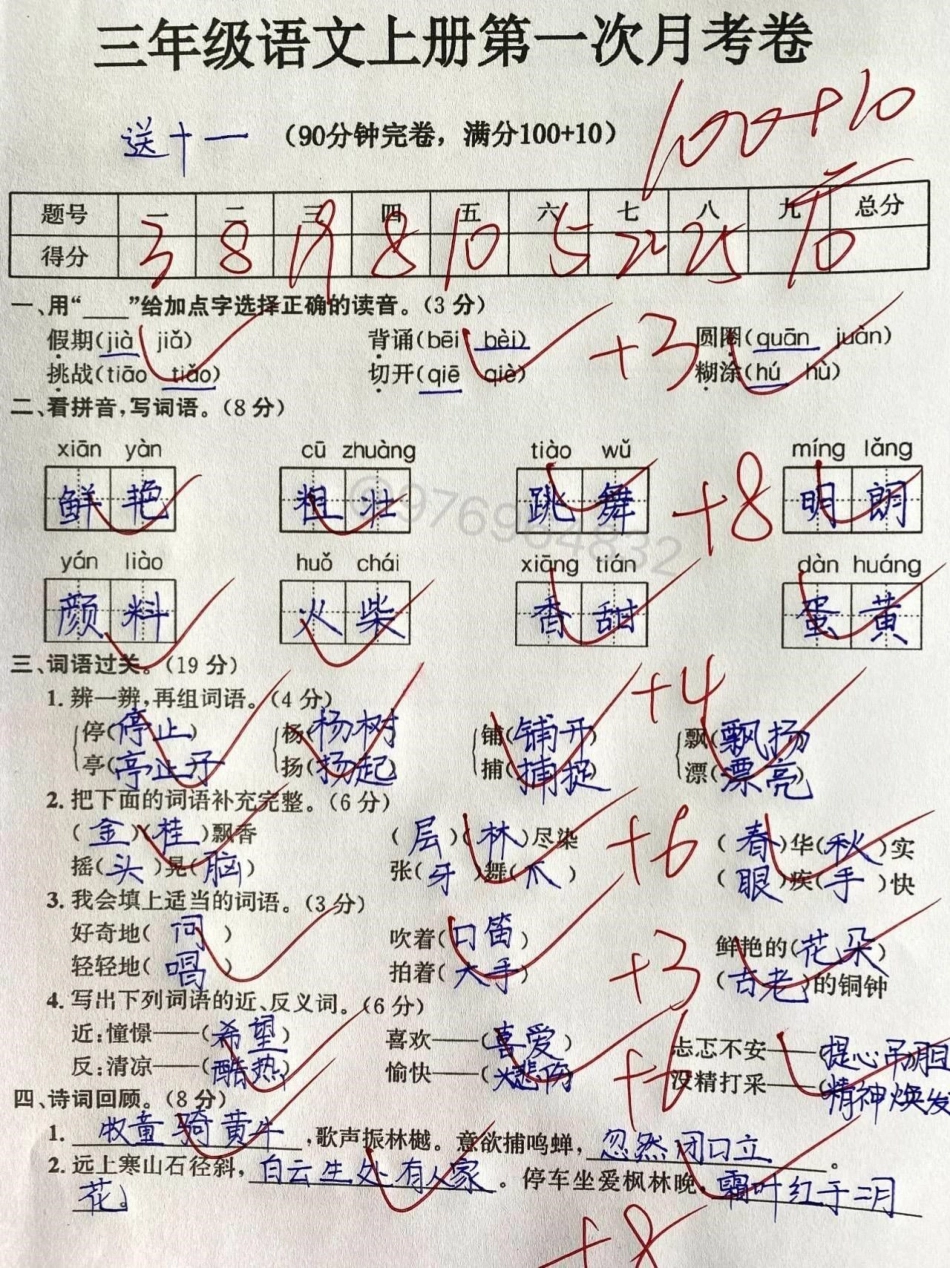 三年级语文上册第一次月考卷
送十一 (90分钟完卷,满分100+10) 100+10
题号 一 二 三 四 五 六 七 八 九 总分
得分 3 8 19 8 10 5 22 25 10
一、用“____”给加点字选择正确的读音。(3分)
假期(jià jiǎ) 背诵(bēi bèi) +3 圆圈(quān juàn)
挑战(tiāo tiǎo) 切开(qiē qiè) 糊涂(hú hù)
二、看拼音,写词语。(8分)
xiān yàn cū zhuàng tiào wǔ míng lǎng
鲜艳 粗壮 跳舞 +8 明朗
@976964832
yán liào huǒ chái xiāng tián dàn huáng
颜料 火柴 香甜 蛋黄
三、词语过关。(19分)
1.辨一辨,再组词语。(4分) +4
停(停止) 杨(杨树) 铺(铺开) 飘(飘扬)
亭(亭止子) 扬(扬起) 捕(捕捉) 漂(漂亮)
2.把下面的词语补充完整。(6分)
(金)(桂)飘香 (层)(林)尽染 +6 (春)华(秋)实
摇(头)晃(脑) 张(牙)舞(爪) (眼)疾(手)快
3.我会填上适当的词语。(3分)
好奇地(问) 吹着(口笛) +3 鲜艳的(花朵)
轻轻地(唱) 拍着(大手) (古老)的铜钟
4.写出下列词语的近、反义词。(6分)
近:憧憬——(希望) 喜欢——(喜爱) +6 忐忑不安——(提心吊胆
反:清凉——(酷热) 愉快——(悲伤) 没精打采——(精神焕发
四、诗词回顾。(8分)
1.牧童骑黄牛,歌声振林樾。意欲捕鸣蝉,忽然闭口立。
2.远上寒山石径斜,白云生处有人家。停车坐爱枫林晚,霜叶红于二月
花。
+8